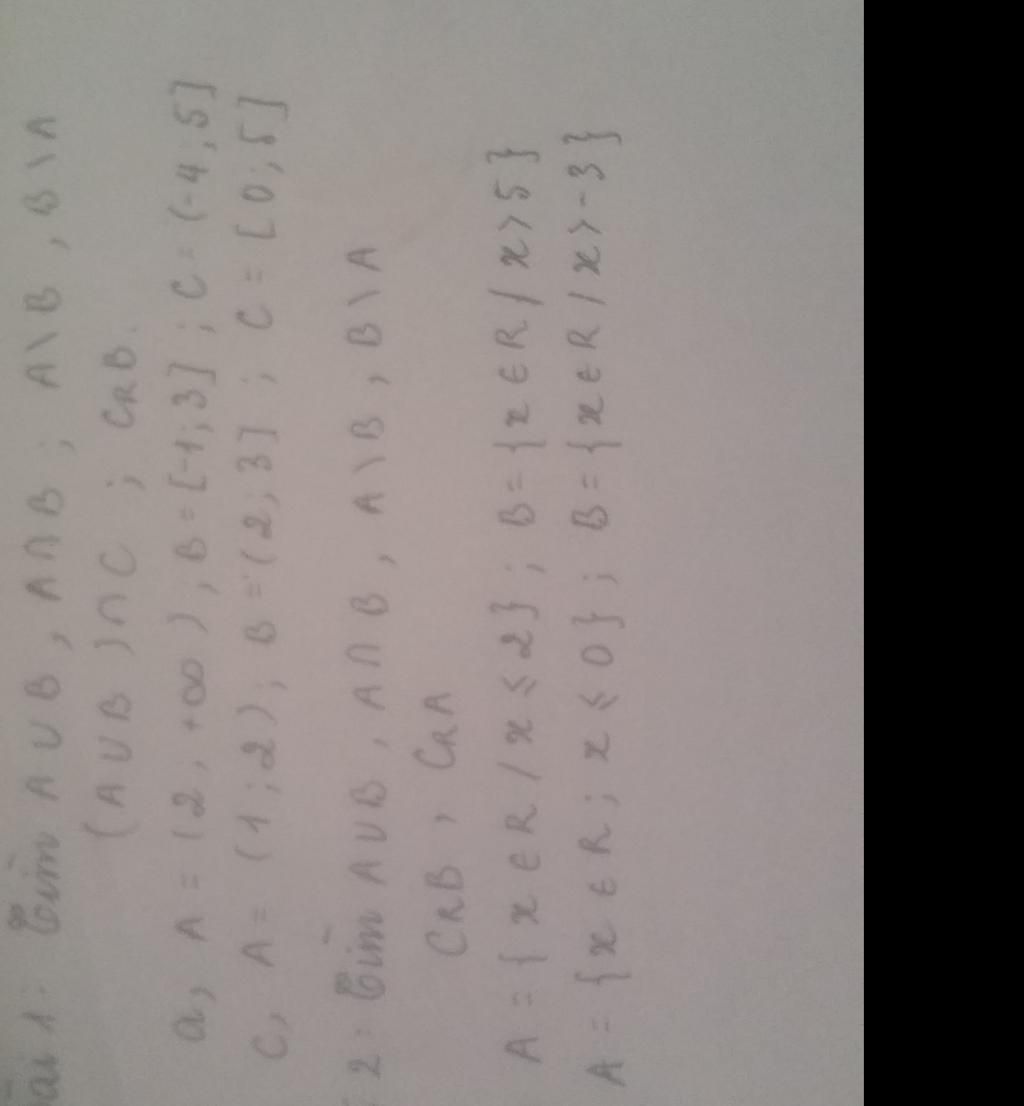 ài 1: Tìm A ∪ B, A ∩ B; A \ B, B \ A
(A ∪ B) ∩ C; CRB.
a, A = (2, +∞), B = [-1; 3]; C = (-4; 5]
C, A = (1; 2); B = (2; 3]; C = [0; 5]
2: Tìm A ∪ B, A ∩ B, A \ B, B \ A
CRB, CRA
A = {x ∈ R / x ≤ 2}; B = {x ∈ R / x > 5}
A = {x ∈ R; x ≤ 0}; B = {x ∈ R / x > -3}